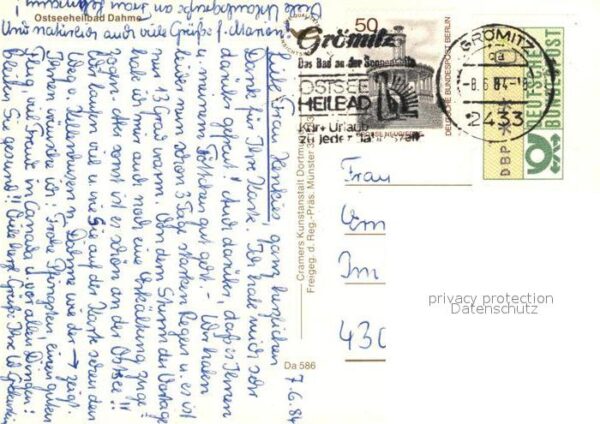 Ostseeheilbad Dahme
Und natürlich auch viele Grüße f. Marion
7.6.84
Liebe Frau Henkies, ganz herzlichen
Dank für Ihre Karte. Ich habe mich sehr
darüber gefreut! Auch darüber, daß es Ihnen
u. meinem gut geht. - Wir haben
leider nun schon 3 Tage starken Regen u. es ist
nur 13 Grad warm. Von dem Sturm der Vortage
habe ich mir auch noch eine Erkältung zuge-
zogen. Aber sonst ist es schön an der Ostsee!!
Wir laufen viel u. wie Sie auf der Karte sehen den
Weg v. Kellenhusen n. Dahme wie der → zeigt.
Ihnen wünsche ich: Frohe Pfingsten, einen guten
Flug, viel Freude in Canada u. vor allen Dingen:
bleiben Sie gesund! Viele herzl. Grüße Ihre
Cramers Kunstanstalt Dortmund
Freigeg. d. Reg.-Präs. Münster
Da 586
50
DEUTSCHE BUNDESPOST BERLIN
Grömitz
Das Bad an der Sonnenseite
OSTSEE
HEILBAD
Kurz Urlaub
zu jeder Jahreszeit
GRÖMITZ 1
da
-8.6.84-18
2433
DEUTSCHE
BUNDESPOST
DBP
Frau
Im
430
privacy protection
Datenschutz